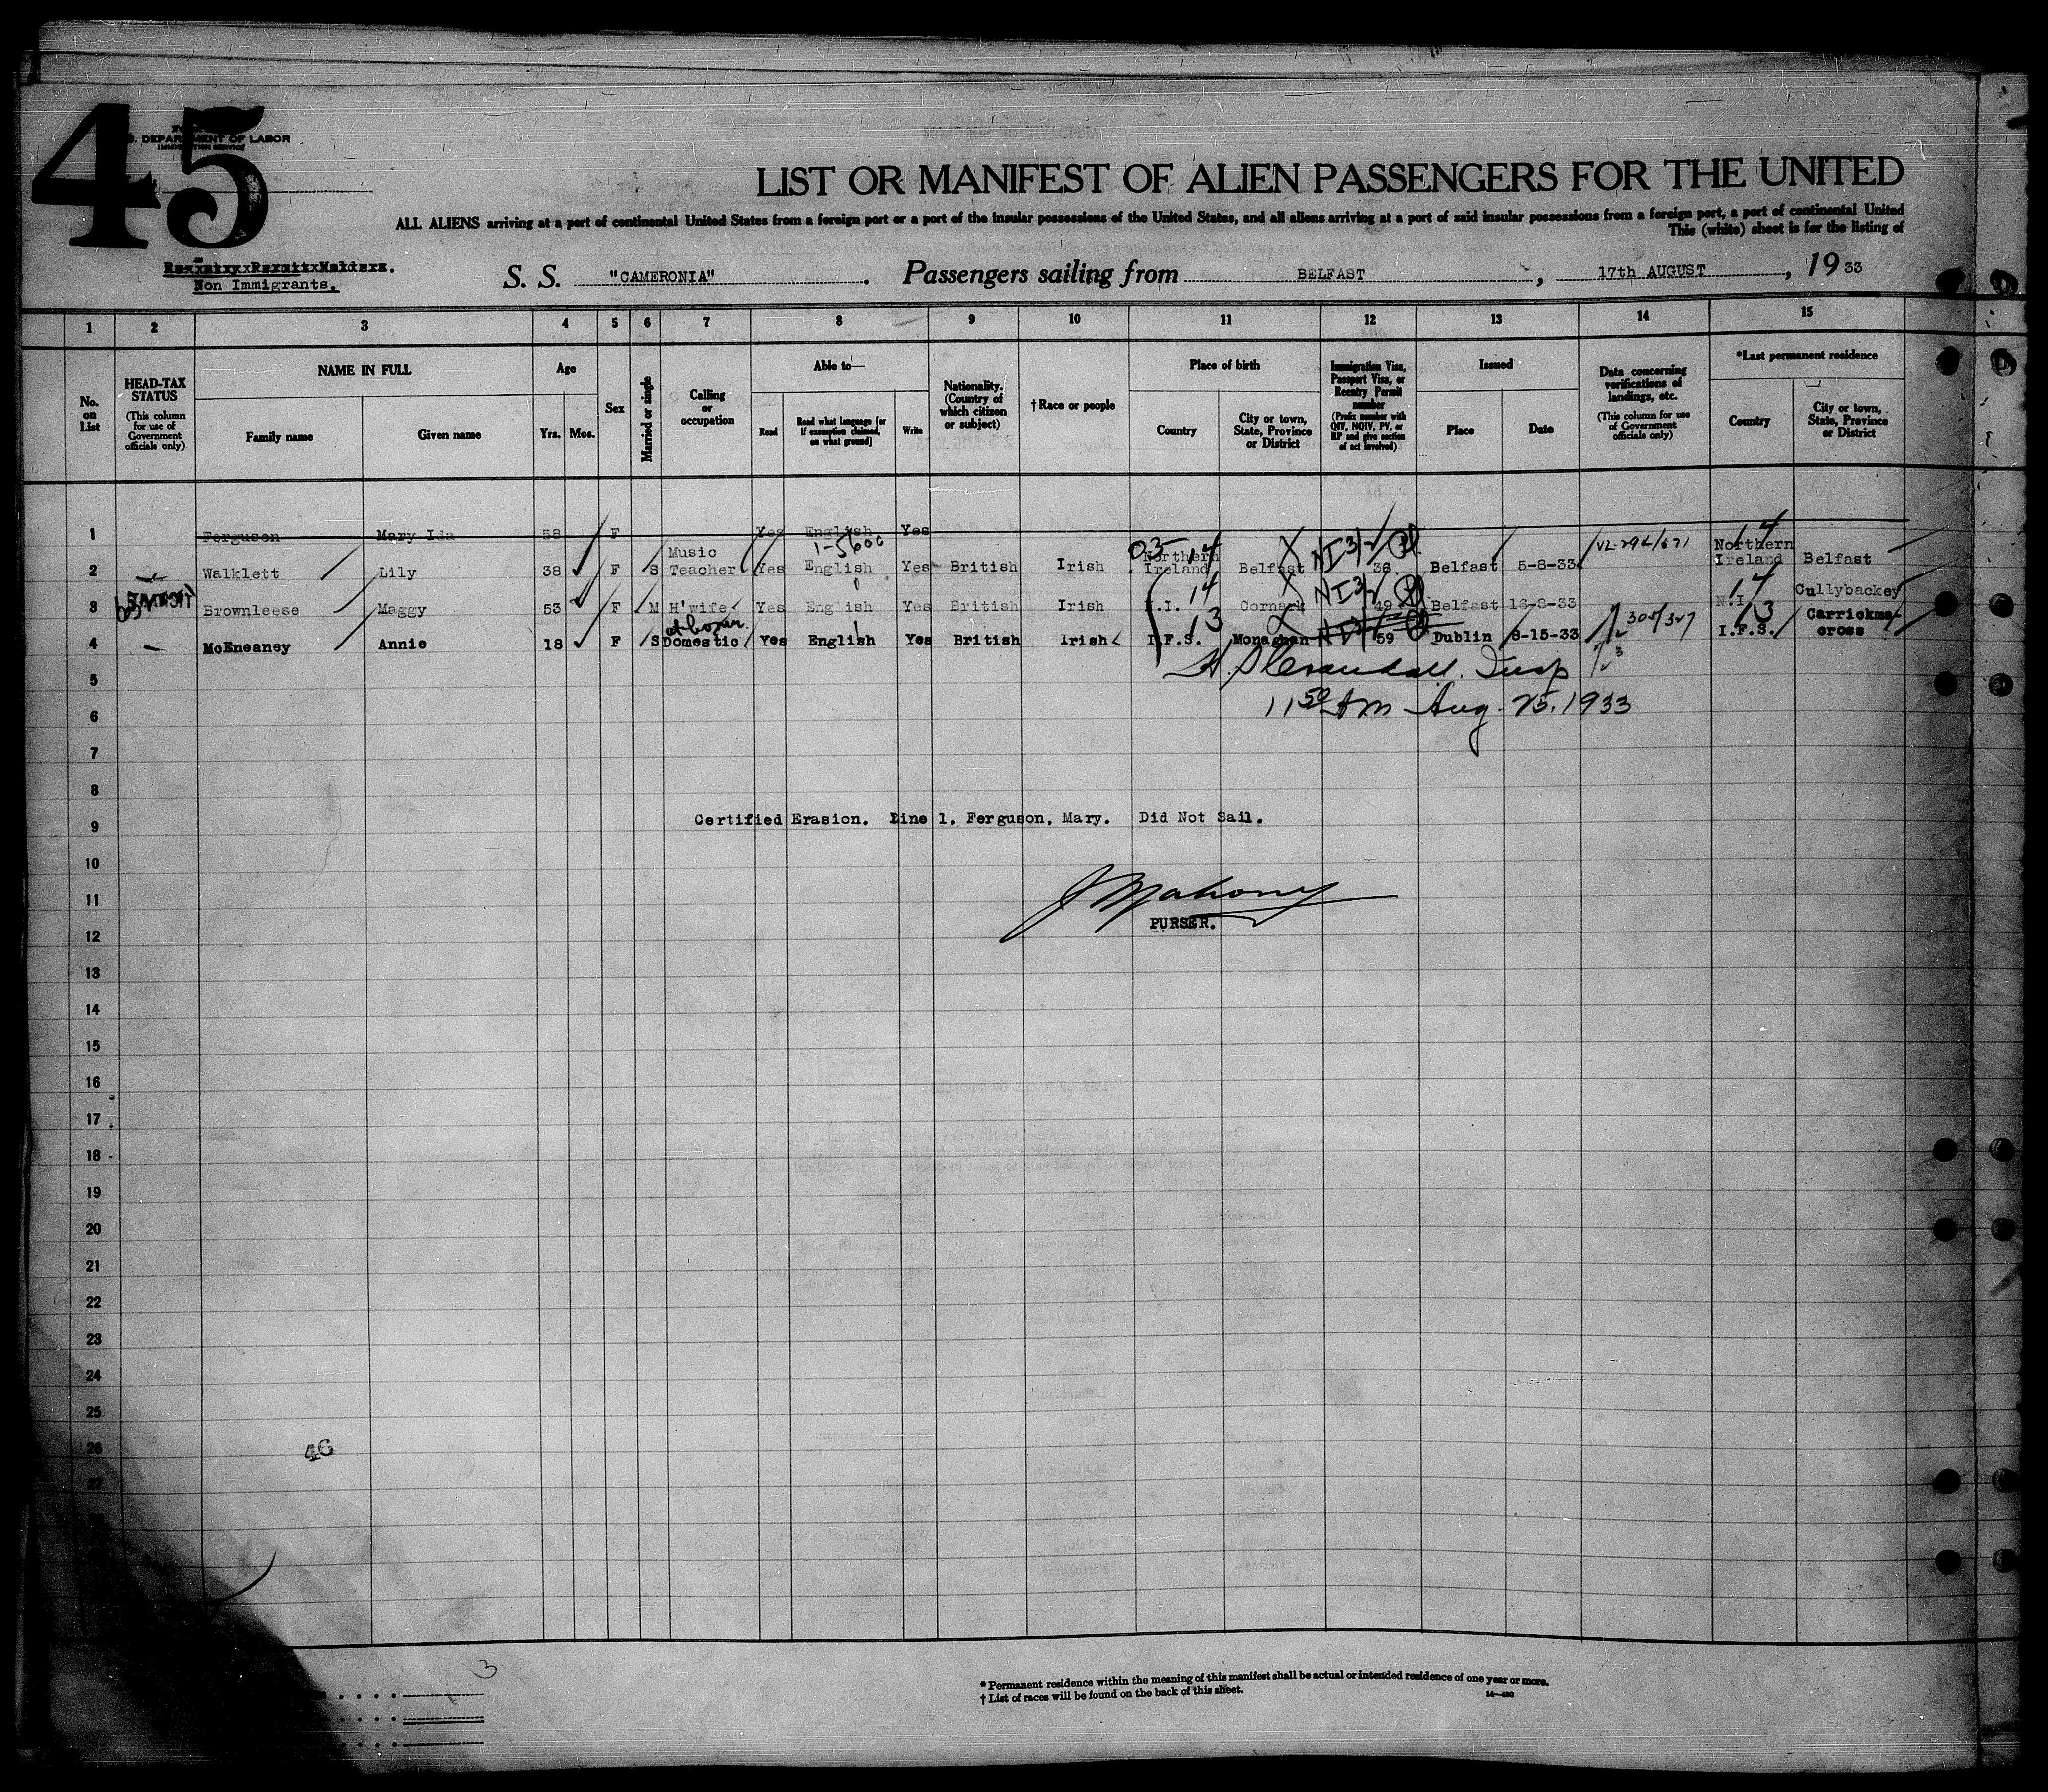 45
DEPARTMENT OF LABOR
IMMIGRATION SERVICE
LIST OR MANIFEST OF ALIEN PASSENGERS FOR THE UNITED
ALL ALIENS arriving at a port of continental United States from a foreign port or a port of the insular possessions of the United States, and all aliens arriving at a port of said insular possessions from a foreign port, a port of continental United
This (white) sheet is for the listing of
Non Immigrants.
S. S. "CAMERONIA". Passengers sailing from BELFAST, 17th AUGUST, 19 33
1 2 3 4 5 6 7 8 9 10 11 12 13 14 15
No. on List
HEAD-TAX STATUS
(This column for use of Government officials only)
NAME IN FULL
Family name Given name
Age
Yrs. Mos.
Sex
Married or single
Calling or occupation
Able to—
Read Read what language [or if exemption claimed, on what ground] Write
Nationality. (Country of which citizen or subject)
†Race or people
Place of birth
Country City or town, State, Province or District
Immigration Visa, Passport Visa, or Reentry Permit number
(Prefix number with QIV, NQIV, PV, or RP and give section of act involved)
Issued
Place Date
Data concerning verifications of landings, etc.
(This column for use of Government officials only)
*Last permanent residence
Country City or town, State, Province or District
1 Ferguson Mary Ida 58 F Yes English Yes
2 Walklett Lily 38 F S Music Teacher Yes English Yes British Irish Northern Ireland Belfast 36 Belfast 5-8-33 Northern Ireland Belfast
3 Brownleese Maggy 53 F M H'wife Yes English Yes British Irish N.I. 49 Belfast 16-8-33 N.I. Cullybackey
4 McEneaney Annie 18 F S Domestic Yes English Yes British Irish I.F.S. Monaghan 59 Dublin 8-15-33 I.F.S. Carrickma-cross
5
6 11 50 AM Aug. 25, 1933
7
8
9 Certified Erasion. Line 1. Ferguson, Mary. Did Not Sail.
10
11 J Mahony
12 PURSER.
13
14
15
16
17
18
19
20
21
22
23
24
25
26 46
3
* Permanent residence within the meaning of this manifest shall be actual or intended residence of one year or more.
† List of races will be found on the back of this sheet.
14—430